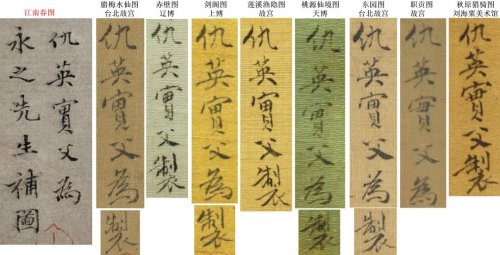 江南春图
仇英實父為
永之先生補圖
腊梅水仙图
台北故宫
仇英實父為
製
赤壁图
辽博
仇英實父製
剑阁图
上博
仇英實父為
製
莲溪渔隐图
故宫
仇英實父製
桃源仙境图
天博
仇英實父為
製
东园图
台北故宫
仇英實父為
製
职贡图
故宫
仇英實父為
秋原猎骑图
刘海粟美术馆
仇英實父製